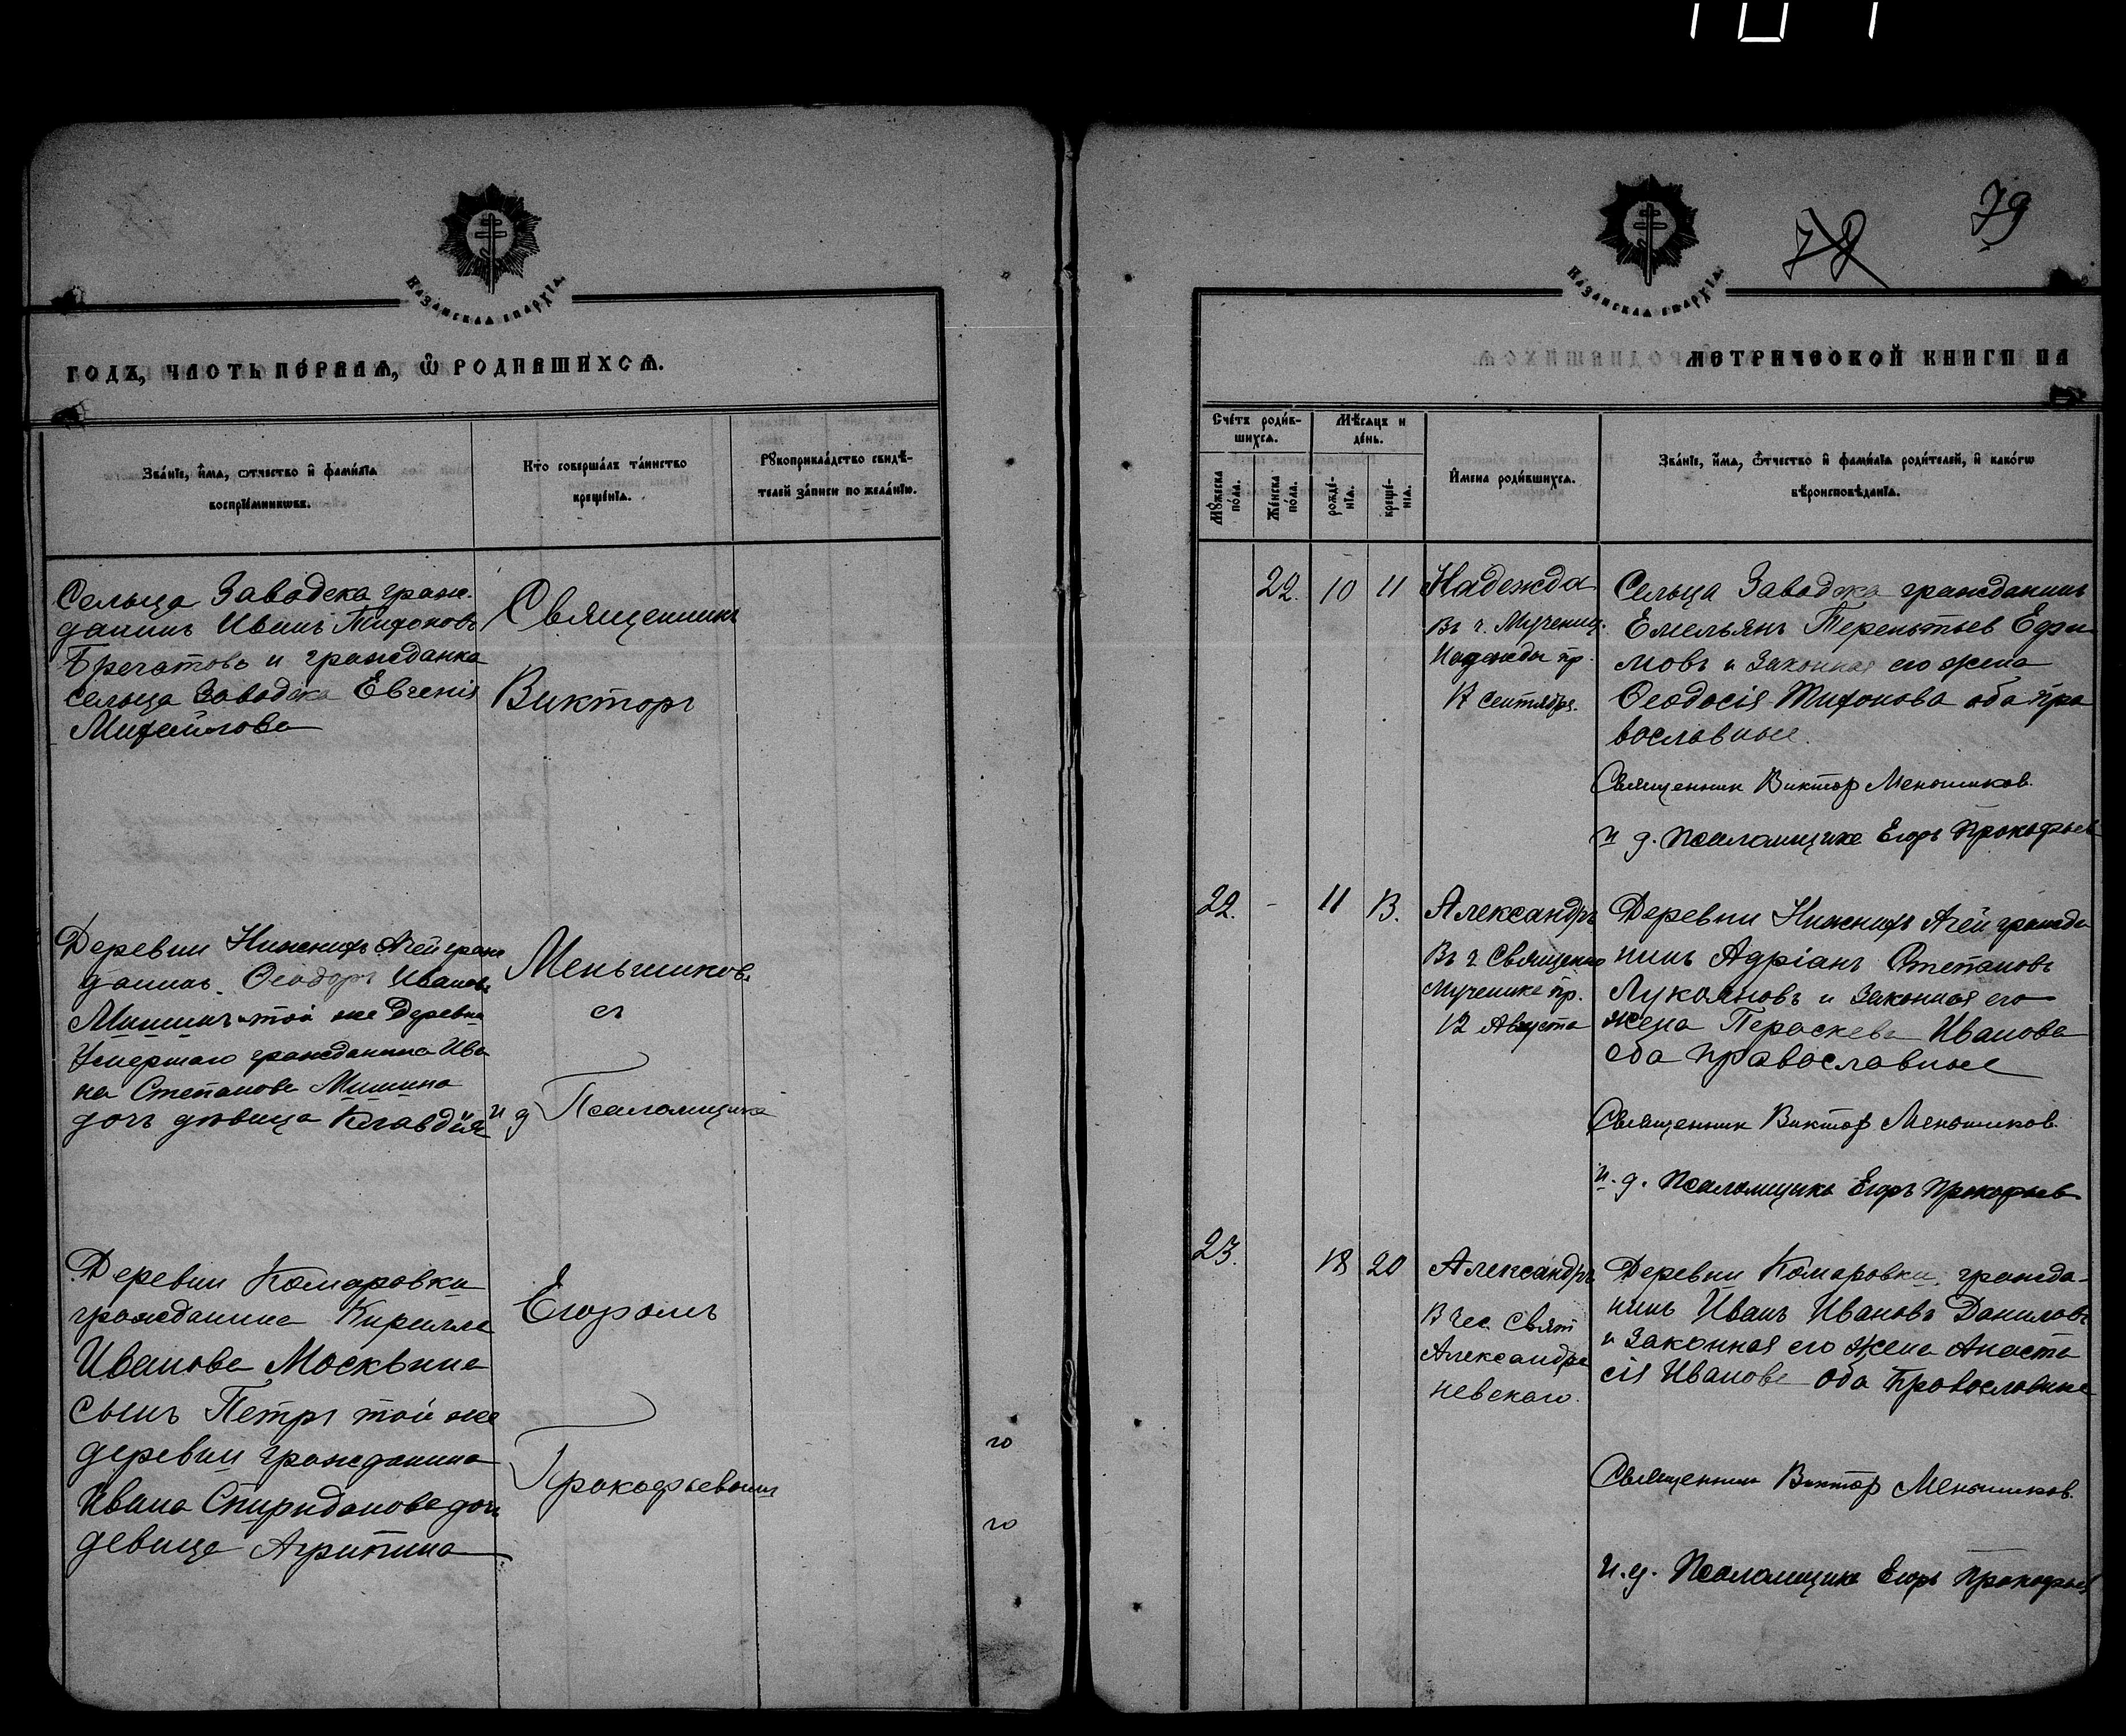 79
78
КАЗАНСКАѦ ЕПАРХІА.
ГОДЪ, ЧАСТЬ ПЕРВАѦ, Ѽ РОДИВШИХСѦ.
Зва́нїе, и҆́мѧ, ѻ҆́тчество и҆ фами́лїѧ
воспрїе́мникѡвъ.
Кто̀ соверша́лъ та́инство
креще́нїѧ.
Рꙋкоприкла́дство свидѣ́-
телей за́писи по жела́нїю.
Сельца Заводска граж-
данинъ Иванъ Тихоновъ
и гражданка
сельца Заводска Евгенія
Михайлова
Священникъ
Викторъ
Деревни Нижнихъ Ачей граж
данинъ Ѳеодоръ Ивановъ
Мишинъ и той же деревни
умершаго гражданина Ива
на Степанова Мишина
дочь дѣвица Клавдія
Меньшиковъ
съ
и д Псаломщика
Деревни Комаровки
гражданина Кирилла
Иванова Москвина
сынъ Петръ той же
деревни гражданина
Ивана Спиридонова доч
девица Агрипина
Егоромъ
Прокофьевымъ
го
го
КАЗАНСКАѦ ЕПАРХІА.
МЕТРИЧЕСКОЙ КНИГИ НА
Сче́тъ роди́в-
шихсѧ.
Мѣ́сѧцъ и
де́нь.
Мꙋ́жеска
по́ла.
Же́нска
по́ла.
рожде́-
нїѧ.
креще́-
нїѧ.
И҆мена̀ роди́вшихсѧ.
Зва́нїе, и҆́мѧ, ѻ҆́тчество и҆ фами́лїѧ роди́телей, и҆ како́гѡ
вѣроисповѣ́данїѧ.
22. 10 11 Надежда
Въ ч. Мучениц.
Надежды пр.
17 Сентября.
Сельца Заводска гражданинъ
Емельянъ Терентьев Ефи
мовъ и Законная его жена
Ѳеодосія Тихонова оба пра
вославные.
Священник Виктор Меньшиков.
и д. Псаломщика Егоръ Прокофьев
22. - 11 13. Александръ
Въ ч Священно
Мученика пр.
12 Августа
Деревни Нижнихъ Ачей гражда
нинъ Адріанъ Степановъ
Лукояновъ и Законная его
жена Параскева Иванова
оба православные
Священник Виктор Меньшиков.
и. д. Псаломщика Егоръ Прокофьев
23. 18 20 Александръ
В чес. Свят
Александра
Невскаго.
Деревни Комаровки гражда-
нинъ Иванъ Ивановъ Даниловъ
и Законная его жена Анаста
сія Иванова оба Православные
Священник Виктор Меньшиков.
И.д. Псаломщика Егоръ Прокофьев